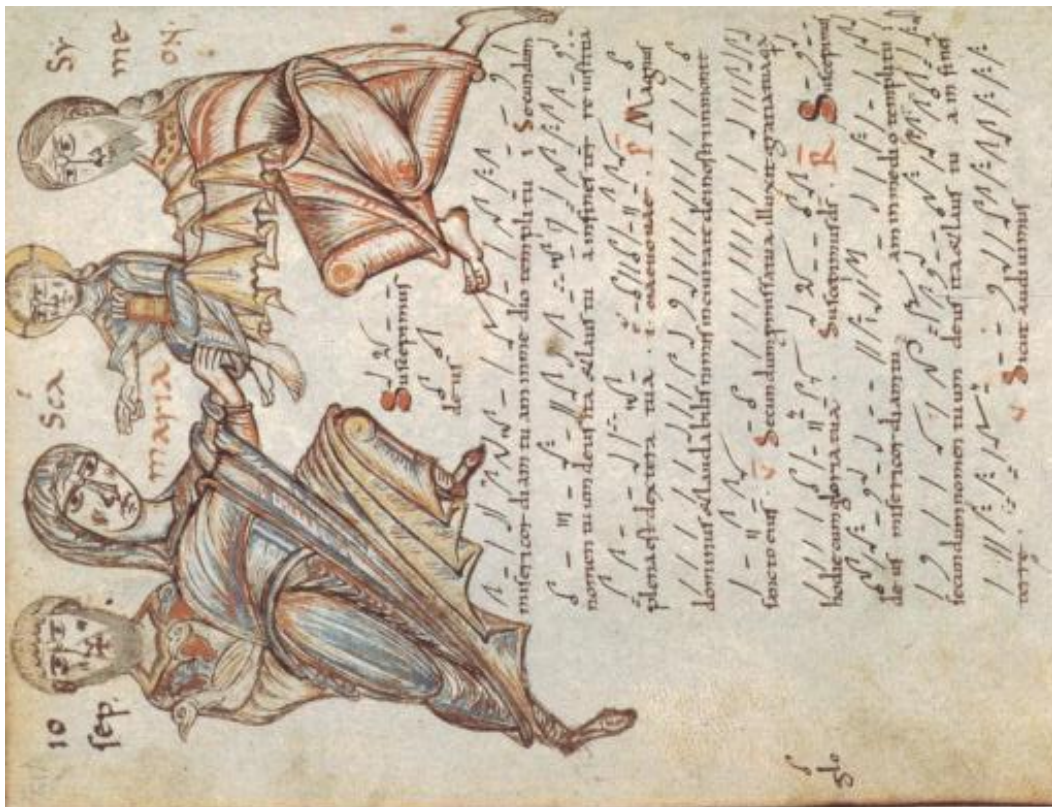 IO
sep.
SCA
MARIA
SY
ME
ON
Suscepimus
deus
misericordiam tuam in medio templi tui Secundum
nomen tuum deus ita & laus tua in fines terre iustitia
plena est dextera tua . P Magnus
dominus & laudabilis nimis in civitate dei nostri in monte
sancto eius . V Secundum
hodie cum gloria tua . Suscepimus ds . R Suscepimus
deus misericordiam tuam in medio templi tui
secundum nomen tuum deus ita & laus tua in fines
terrę . V Sicut audiuimus
Glo